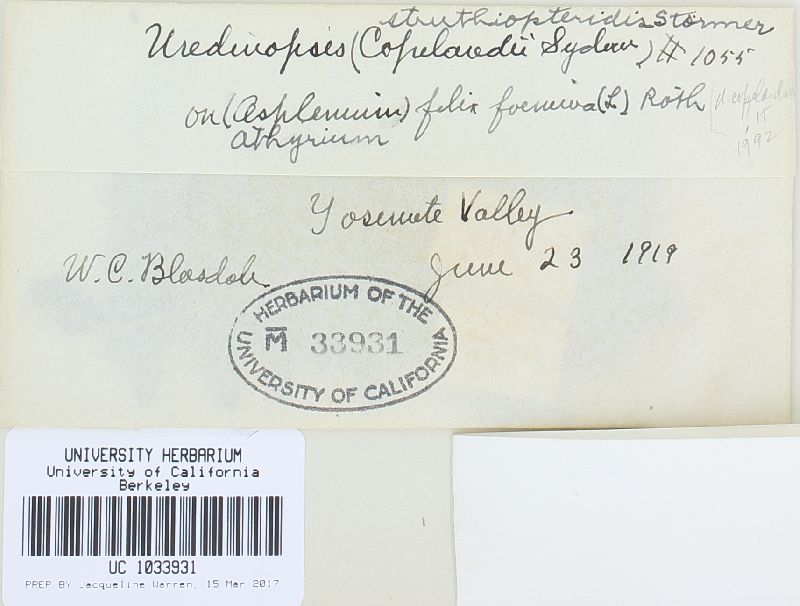 struthiopteridis Störmer
Uredinopsis (Copelandii Sydow) # 1055
on (Asplenium) felix foemina (L) Roth
Athyrium
1992
Yosemite Valley
W. C. Blasdale
June 23 1919
HERBARIUM OF THE
M 33931
UNIVERSITY OF CALIFORNIA
UNIVERSITY HERBARIUM
University of California
Berkeley
UC 1033931
PREP BY Jacqueline Warren, 15 Mar 2017